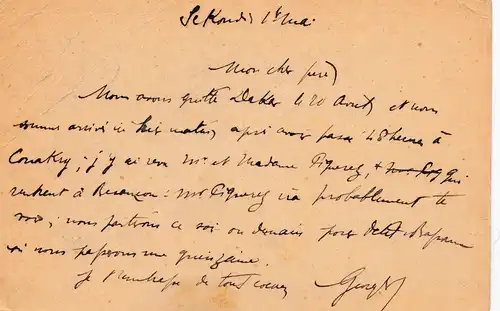 SeKondi 1er Mai
Mon cher père,
Nous avons quitté Dakar le 20 Avril, et nous
sommes arrivés ici hier matin, après avoir passé 48 heures à
Conakry ; j'y ai vu Mr et Madame Piquerez, & qui
rentrent à Besançon : Mr Piquerez ira probablement te
voir ; nous partirons ce soir ou demain pour Petit Bassam
où nous passerons une quinzaine.
Je t'embrasse de tout coeur
Georges